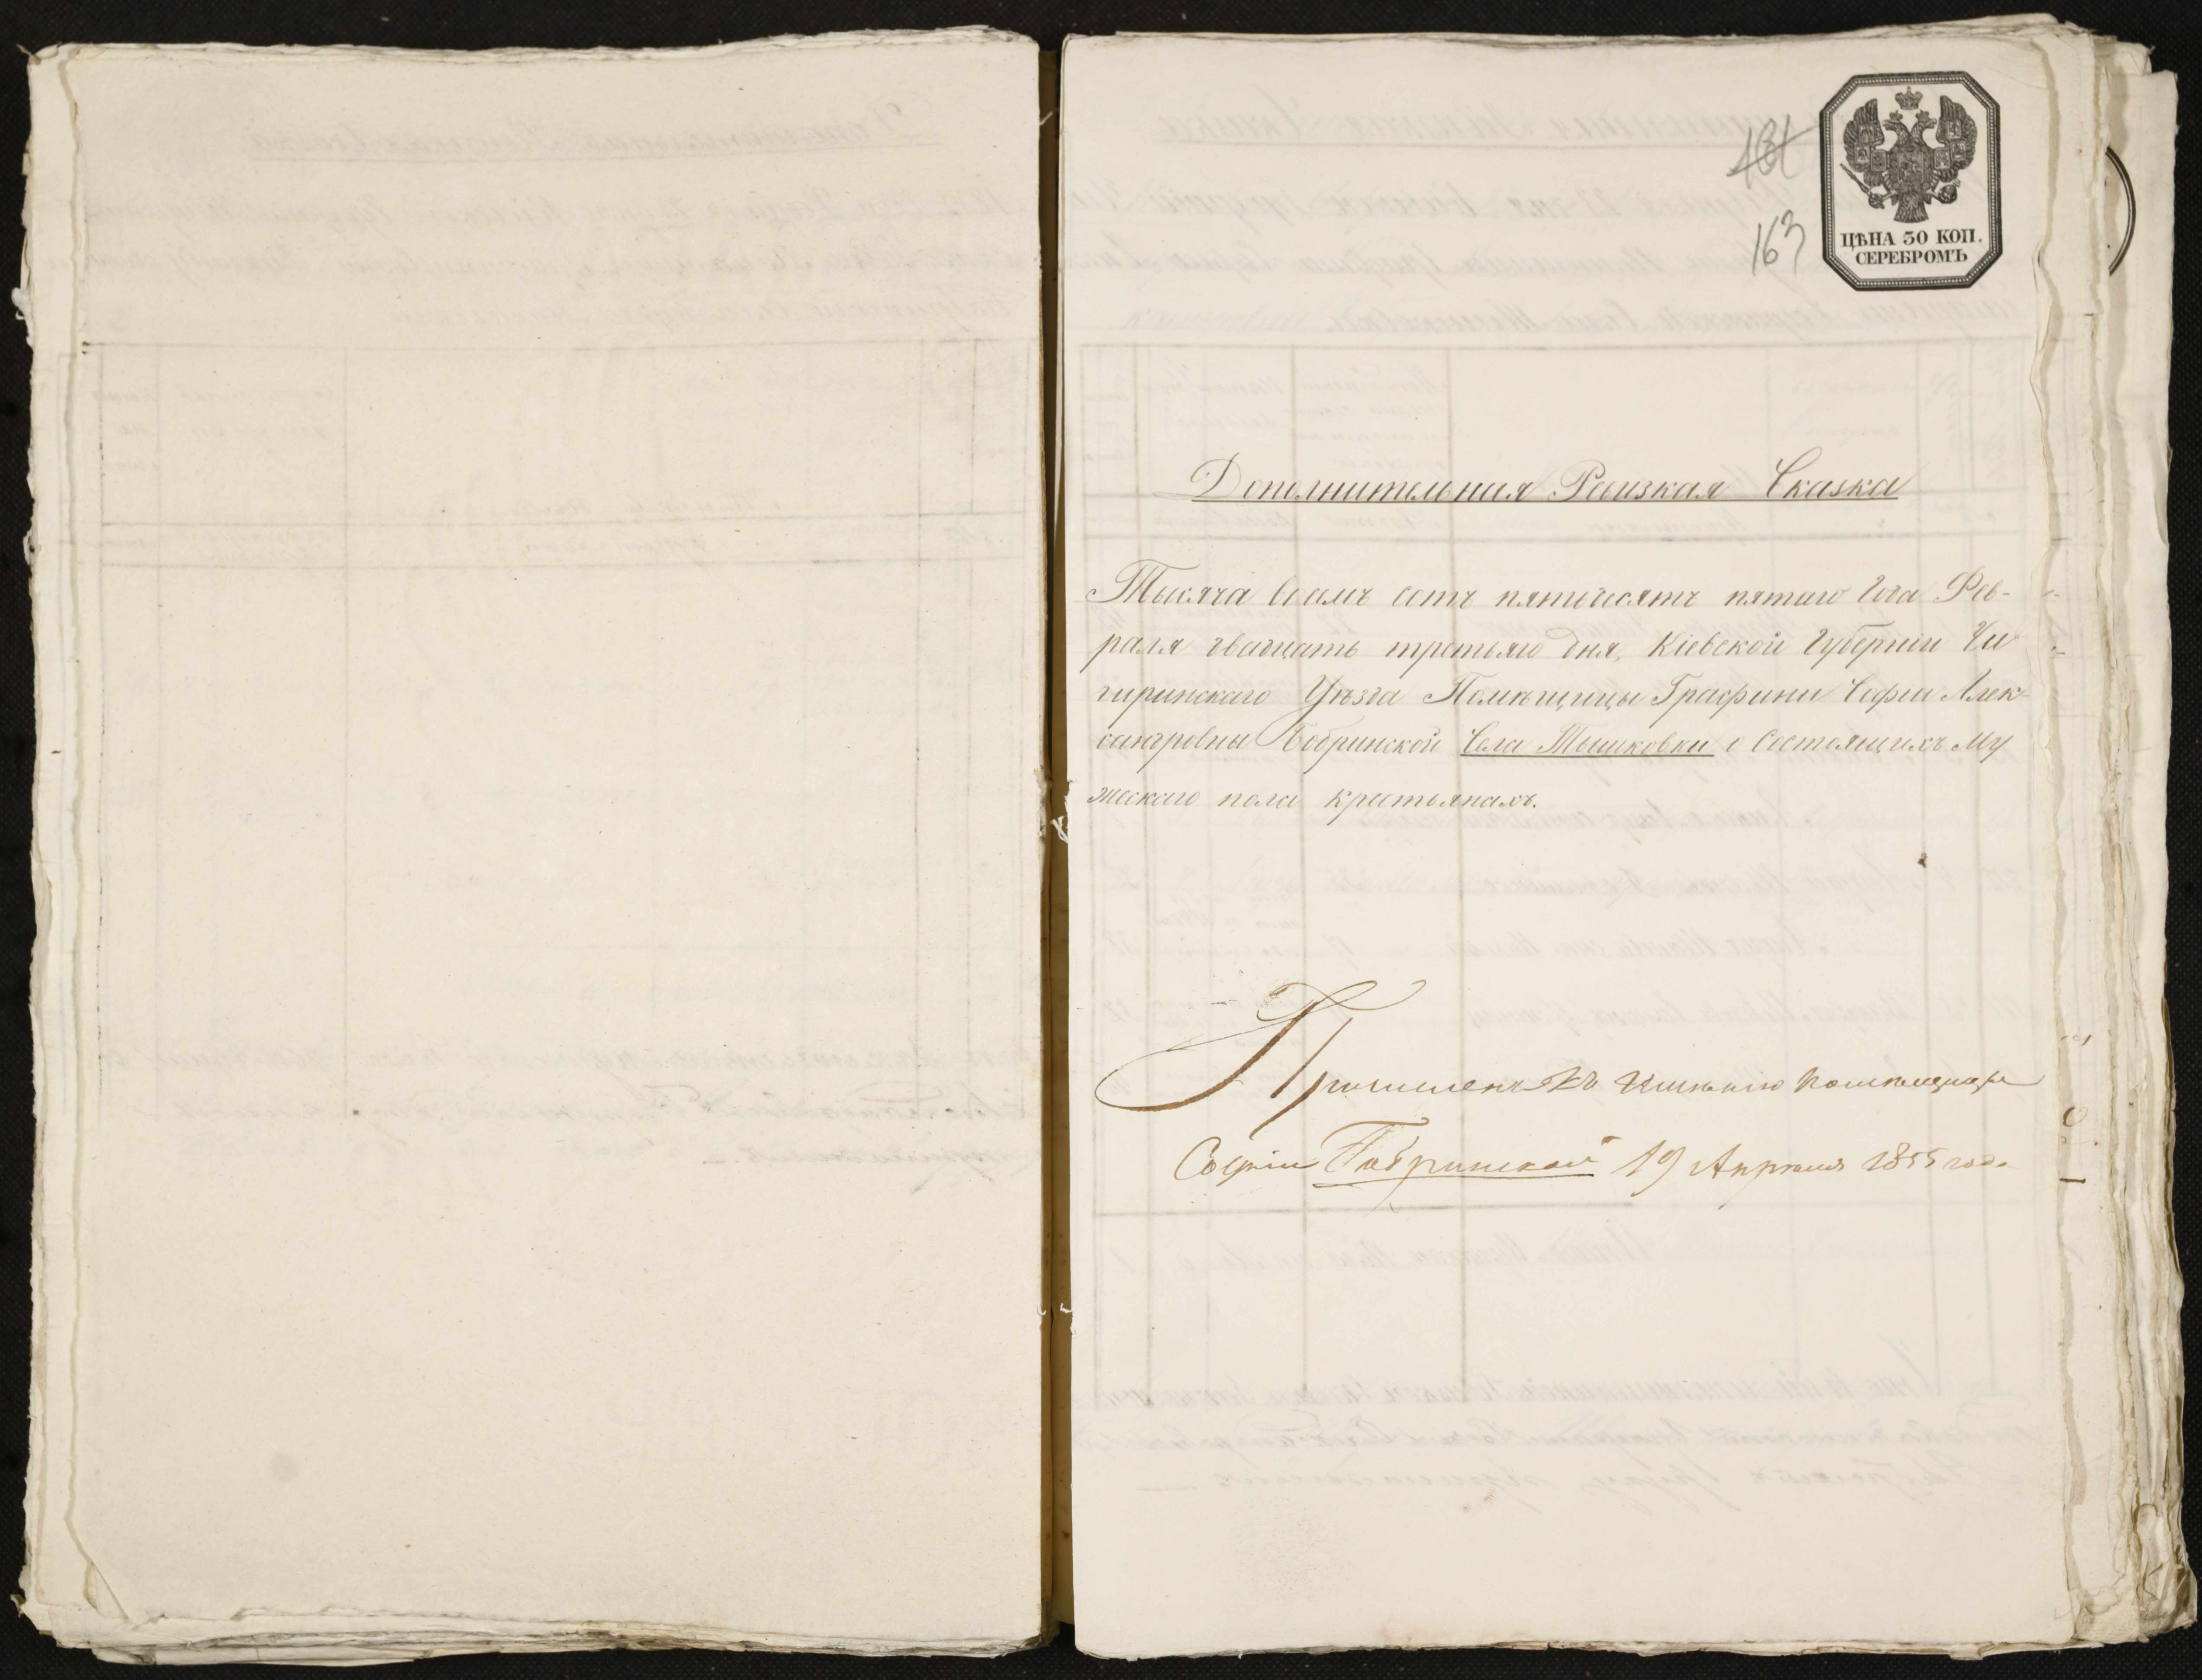 181
163
ЦѢНА 30 КОП.
СЕРЕБРОМЪ
Дополнительная Ревизкая Сказка
Тысяча восемь сотъ пятьдесятъ пятаго Года Фев-
раля двадцать третьяго дня, Кіевской Губерніи Чи
гиринскаго Уѣзда Помѣщицы Графини Софіи Алек-
сандровны Бобринской Села Тышковки о Состоящихъ Му
жескаго пола крестьянахъ.
къ имѣнію помѣщицы
Софіи Бобринской 19 Апрѣля 1855 года